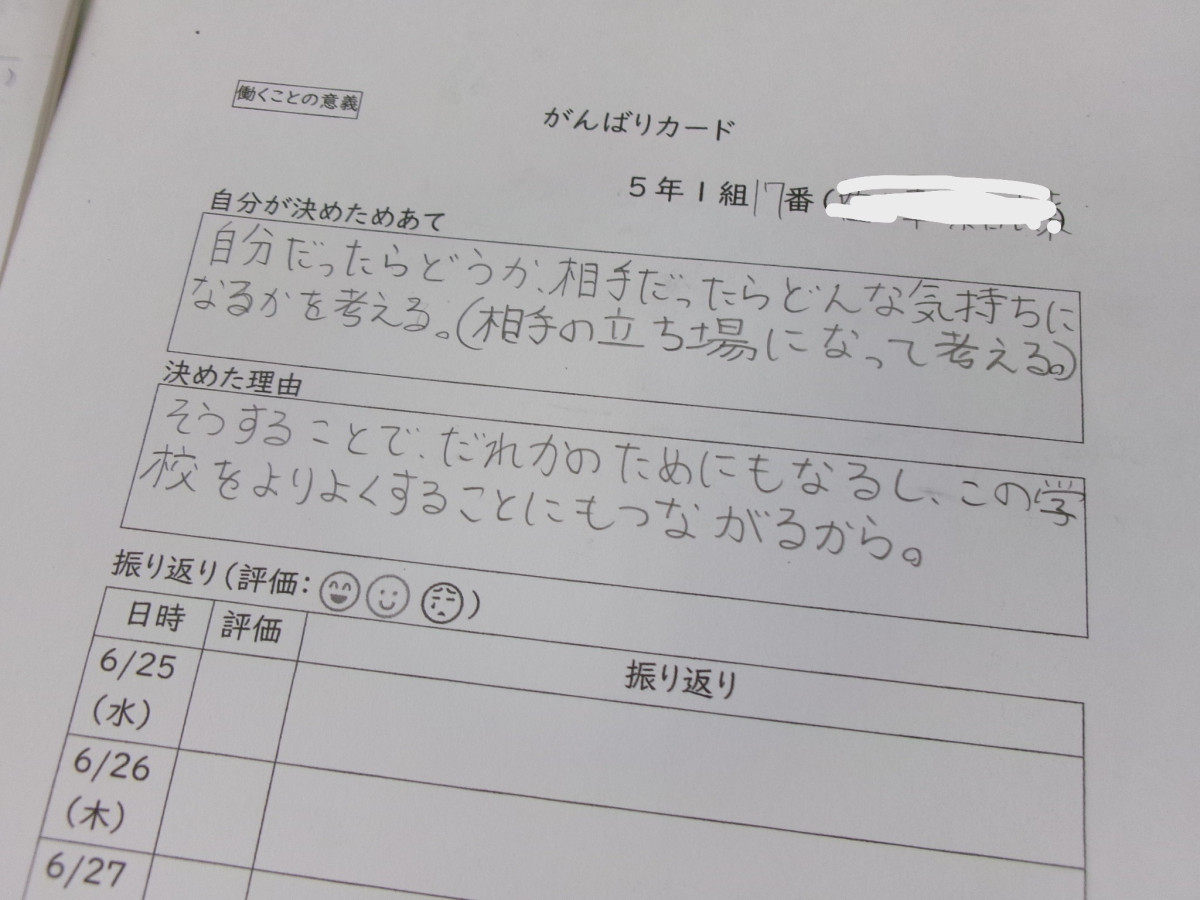 働くことの意義
がんばりカード
5年1組17番(
自分が決めためあて
自分だったらどうか、相手だったらどんな気持ちに
なるかを考える。(相手の立ち場になって考える。)
決めた理由
そうすることで、だれかのためにもなるし、この学
校をよりよくすることにもつながるから。
振り返り(評価:)
日時 評価 振り返り
6/25
(水)
6/26
(木)
6/27